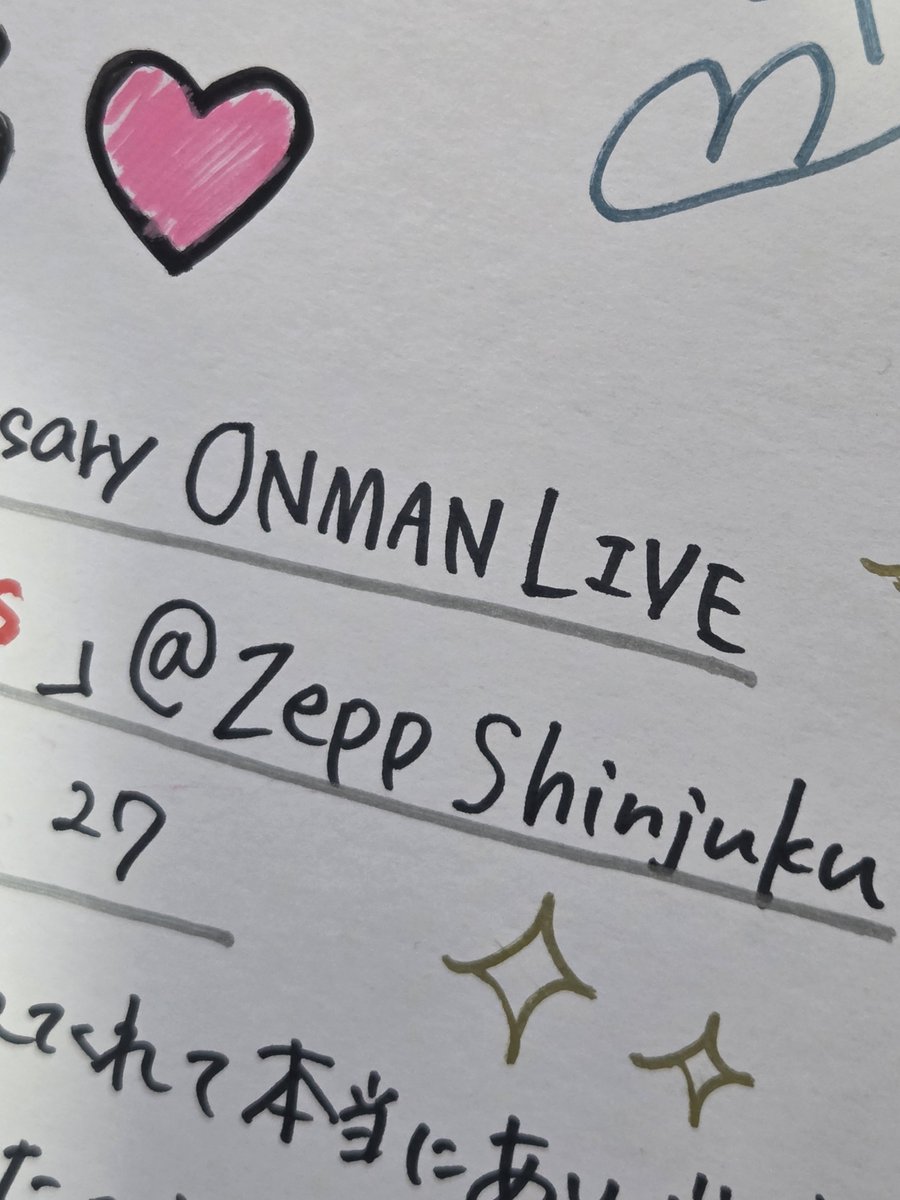 sary ONMAN LIVE
s」@Zepp Shinjuku
27
てくれて本当にあり
た